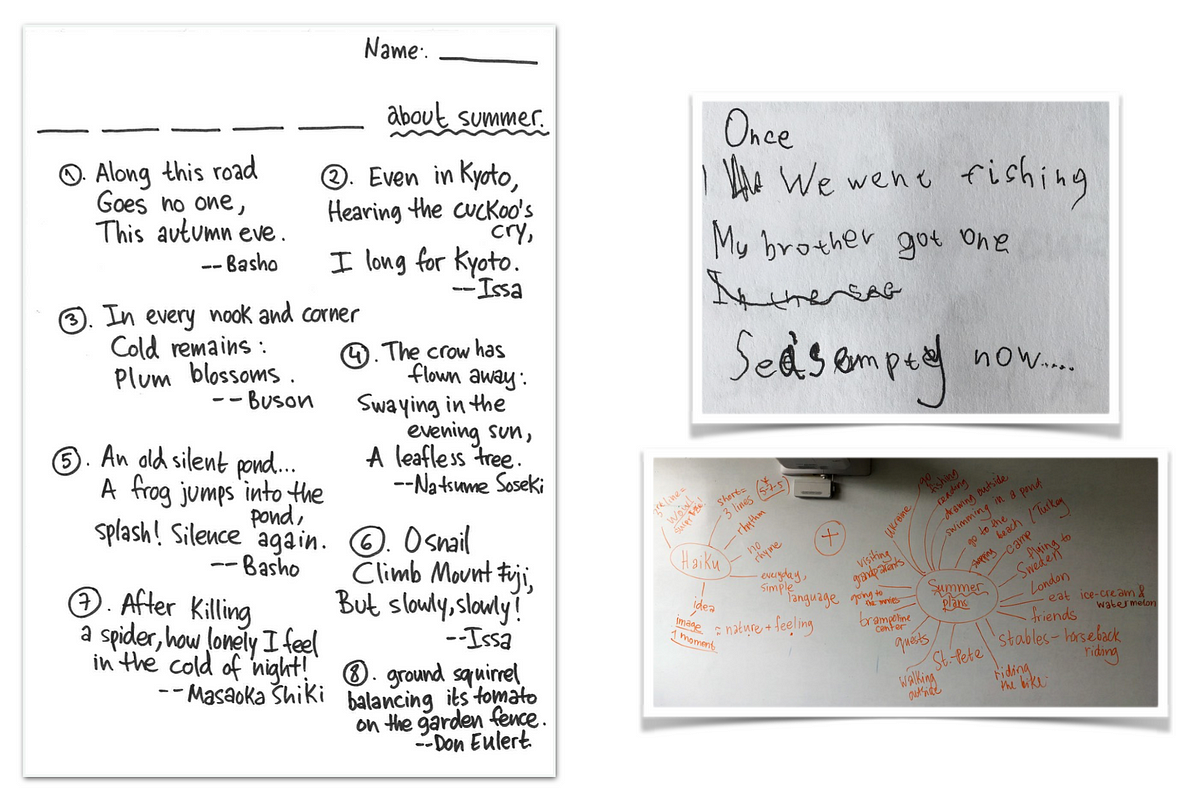 Name: ______
_ _ _ _ _ about summer.
①. Along this road
Goes no one,
This autumn eve.
--Basho
②. Even in Kyoto,
Hearing the cuckoo's
cry,
I long for Kyoto.
--Issa
③. In every nook and corner
Cold remains:
Plum blossoms.
--Buson
④. The crow has
flown away:
Swaying in the
evening sun,
A leafless tree.
--Natsume Soseki
⑤. An old silent pond...
A frog jumps into the
pond,
splash! Silence again.
--Basho
⑥. O snail
Climb Mount Fuji,
But slowly, slowly!
--Issa
⑦. After killing
a spider, how lonely I feel
in the cold of night!
--Masaoka Shiki
⑧. ground squirrel
balancing its tomato
on the garden fence.
--Don Eulert.
Once
We went fishing
My brother got one
In the see
Sea is empty now.....
3rd line =
short =
3 lines (5-7-5)
rhythm
Haiku
no
rhyme
everyday,
simple
language
idea
image
1 moment
= nature + feeling
+
Summer
plans
Ukraine
go
fishing
reading
drawing outside
swimming in a pond
go to the
beach / Turkey
camp
flying to
Sweden
London
eat ice-cream &
watermelon
friends
stables - horseback
riding
riding
the bike
St. Pete
walking
outside
guests
trampoline
center
going to
the movies
visiting
grandparents